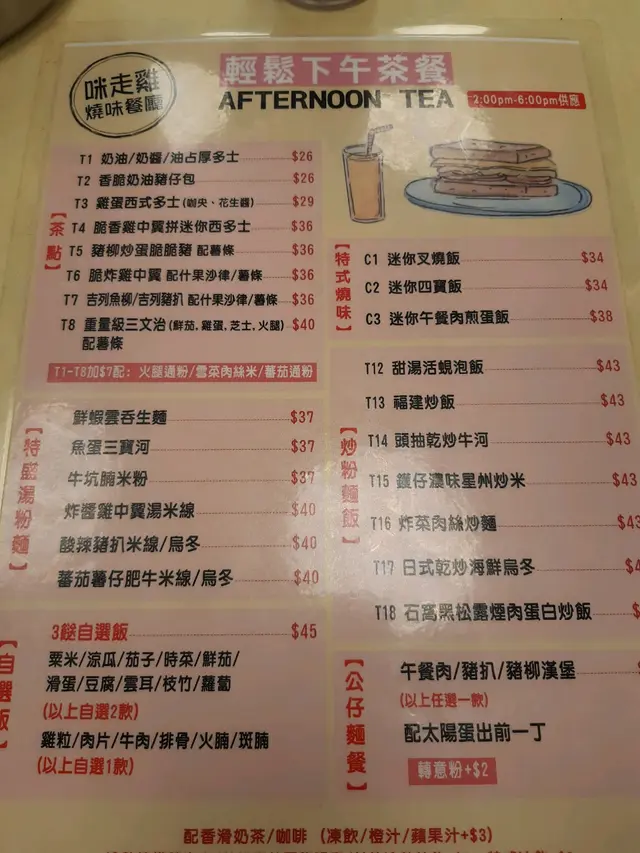 咪走雞
燒味餐廳
輕鬆下午茶餐
AFTERNOON TEA
2:00pm-6:00pm供應
【茶點】
T1 奶油/奶醬/油占厚多士 $26
T2 香脆奶油豬仔包 $26
T3 雞蛋西式多士(咖央、花生醬) $29
T4 脆香雞中翼拼迷你西多士 $36
T5 豬柳炒蛋脆脆豬 配薯條 $36
T6 脆炸雞中翼 配什果沙律/薯條 $36
T7 吉列魚柳/吉列豬扒 配什果沙律/薯條 $36
T8 重量級三文治(鮮茄,雞蛋,芝士,火腿) $40
配薯條
T1-T8加$7配: 火腿通粉/雪菜肉絲米/蕃茄通粉
【特盛湯粉麵】
鮮蝦雲吞生麵 $37
魚蛋三寶河 $37
牛坑腩米粉 $37
炸醬雞中翼湯米線 $40
酸辣豬扒米線/烏冬 $40
蕃茄薯仔肥牛米線/烏冬 $40
【自選飯】
3餸自選飯 $45
粟米/涼瓜/茄子/時菜/鮮茄/
滑蛋/豆腐/雲耳/枝竹/蘿蔔
(以上自選2款)
雞粒/肉片/牛肉/排骨/火腩/斑腩
(以上自選1款)
【特式燒味】
C1 迷你叉燒飯 $34
C2 迷你四寶飯 $34
C3 迷你午餐肉煎蛋飯 $38
【炒粉麵飯】
T12 甜湯活蜆泡飯 $43
T13 福建炒飯 $43
T14 頭抽乾炒牛河 $43
T15 鑊仔濃味星州炒米 $43
T16 炸菜肉絲炒麵 $43
T17 日式乾炒海鮮烏冬
T18 石窩黑松露煙肉蛋白炒飯
【公仔麵餐】
午餐肉/豬扒/豬柳漢堡
(以上任選一款)
配太陽蛋出前一丁
轉意粉+$2
配香滑奶茶/咖啡 (凍飲/橙汁/蘋果汁+$3)